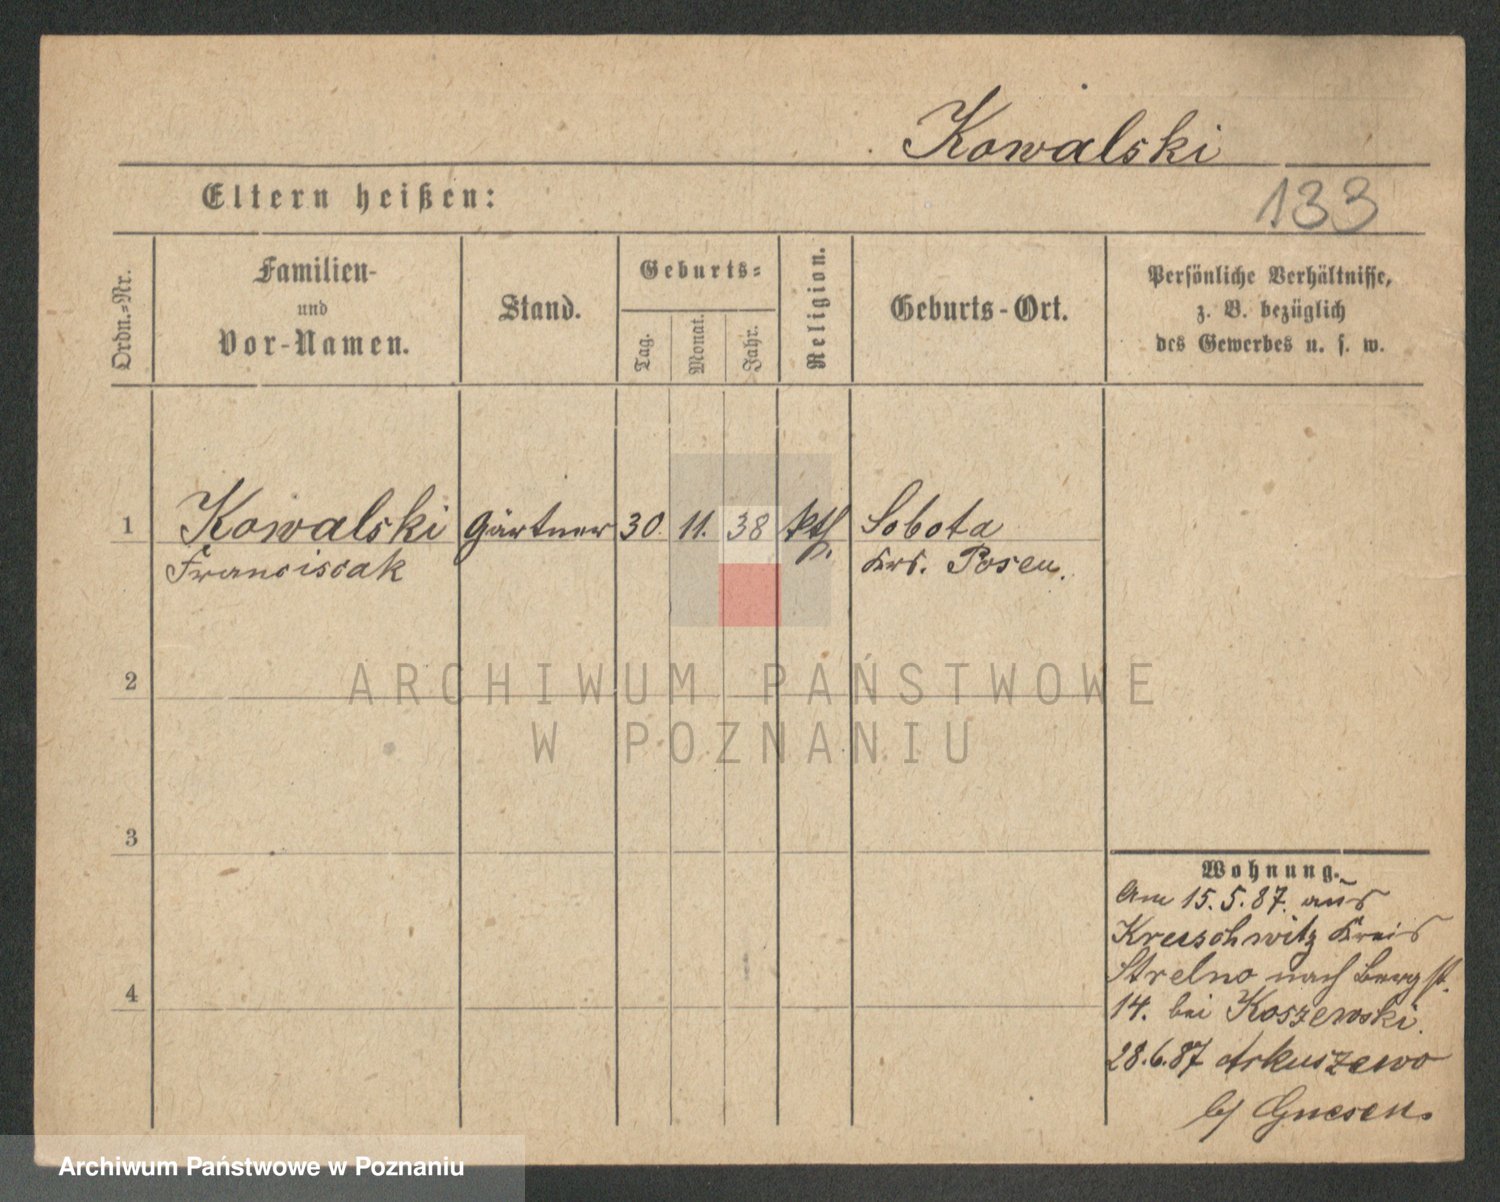 Kowalski
Eltern heißen:
133
Ordn.-Nr.
Familien-
und
Vor-Namen.
Stand.
Geburts-
Tag.
Monat.
Jahr.
Religion.
Geburts-Ort.
Persönliche Verhältnisse,
z. B. bezüglich
des Gewerbes u. s. w.
1 Kowalski Gärtner 30. 11. 38 kth. Sobota
Franciscak Krs. Posen.
2
ARCHIWUM PAŃSTWOWE
W POZNANIU
3
Wohnung.
Am 15.5.87. aus
Kreuschwitz Kreis
Strelno nach Bergst.
4
14. bei Koszewski.
28.6.87 Arkuszewo
b/ Gnesen.
Archiwum Państwowe w Poznaniu